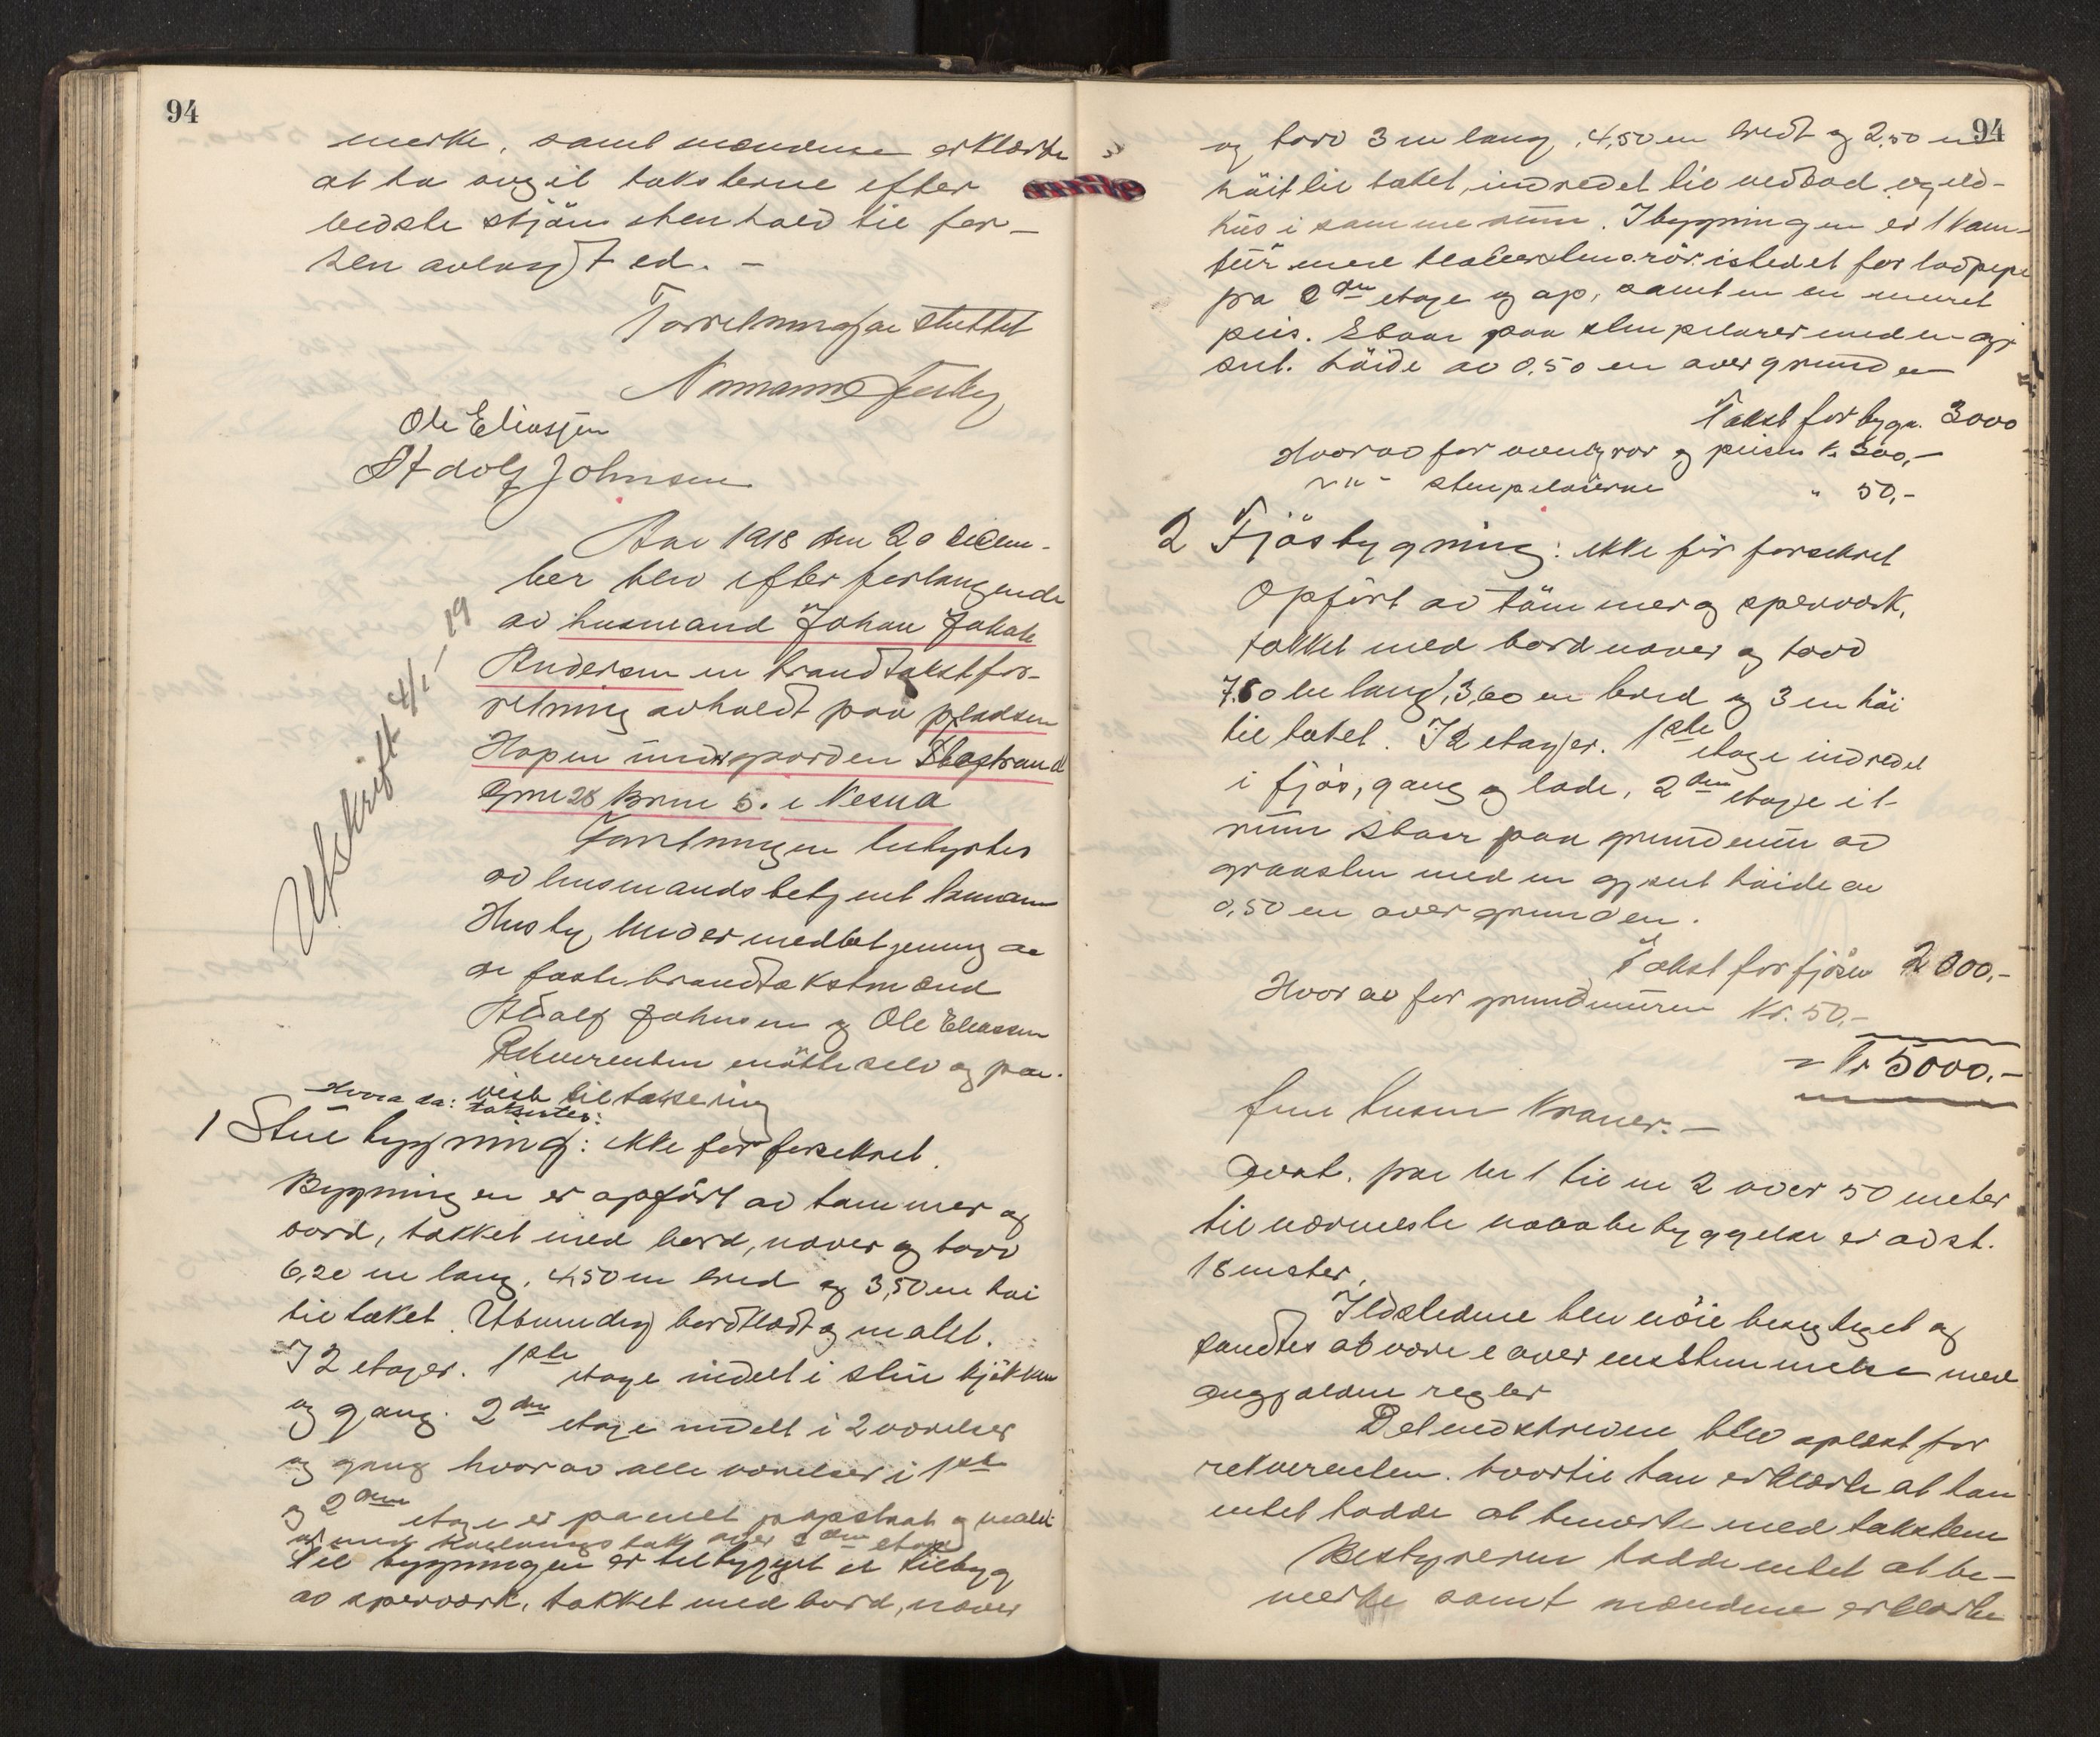 94
merke, samt mændene erklærte
at ha avgit taksterne efter
bedste skjön i henhold til før-
hen avlagt ed. -
Forretningen sluttet
Normann Husby
Ole Eliassen
Adolf Johnsen
Aar 1918 den 20 decem-
ber blev efter forlangende
av husmand Johan Jakob
Andersen en brandtakstfor-
retning avholdt paa pladsen
Hopen under gaarden
Gnr 28 Brnr 5. i Nesna
Utskrift 4/1-19
Forretningen bestyrtes
av lensmandsbetjent Normann
Husby under medbetjening av
de faste brandtakstmænd
Adolf Johnsen og Ole Eliassen
Rekvirenten mötte selv og paa-
viste til taksering
Hvorda: taksertes:
1 Stuebygning: ikke før forsikret.
Bygningen er opført av tømmer og
bord, tækket med bord, never og torv
6,20 m lang, 4,50 m bred og 3,50 m høi
til taket. Utvendig bordklædt og malt.
I 2 etager. 1ste etage indelt i stue kjökken
og gang. 2den etage indelt i 2 værelser
og gang hvorav alle værelser i 1ste
og 2den etage er panelt papstrøket og malt
over 2den etage
Til bygningen er tilbygget et tilbyg
av sperværk, tækket med bord, never
94
og torv 3 m lang, 4,50 m bredt og 2,50 m
höit til taket, indredet til vedbod og eld-
hus i samme rum. I bygningen er 1 kom-
fur med istedet for
fra 2den etage og op, samt en en muret
peis. Staar paa stenpilarer med en gj-
snt. höide av 0,50 m over grunden
Takst for bygn. 3000
Hvorav for ovnsrör og peisen Kr. 300,-
-"- stenpilarerne " 50,-
2 Fjösbygning: ikke för forsikret
Opfört av tömmer og sperværk,
tækket med bord never og torv
7.80 m lang, 3,60 m bred og 3 m höi
til taket. I 2 etager. 1ste etage indredet
i fjös, gang og lade, 2den etage i et
rum Staar paa grundmur av
graasten med en gj.snt höide av
0,50 m over grunden.
Takst for fjösen 2000,-
Hvorav for grundmuren Kr. 50,-
= Kr 5000.-
fem tusen Kroner. -
Avst. fra nr 1 til nr 2 over 50 meter
til nærmeste nabobebyggelse er avst.
18 meter.
Ildstederne blev nöie besigtiget og
fandtes at være i overensstemmelse med
angjældende regler
Det nedskrevne blev oplæst for
rekvirenten. hvortil han erklærte at han
intet hadde at bemerke med taksten
Bestyreren hadde intet at be-
merke samt mændene erklærte